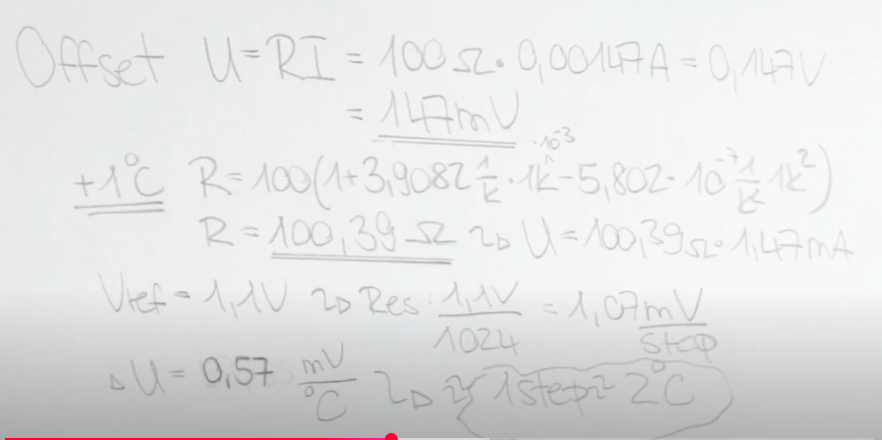 Offset U=RI = 100Ω・0,00147A = 0,147V
= 147mV
+1°C R=100(1+3,9082 1/K・1K ・10^-3 -5,802・10^-7 1/K² 1K²)
R = 100,39Ω ↝ U=100,39Ω・1,47mA
Vref = 1,1V ↝ Res. 1,1V/1024 = 1,07 mV/step
ΔU = 0,57 mV/°C ↝ 1step ≙ 2°C